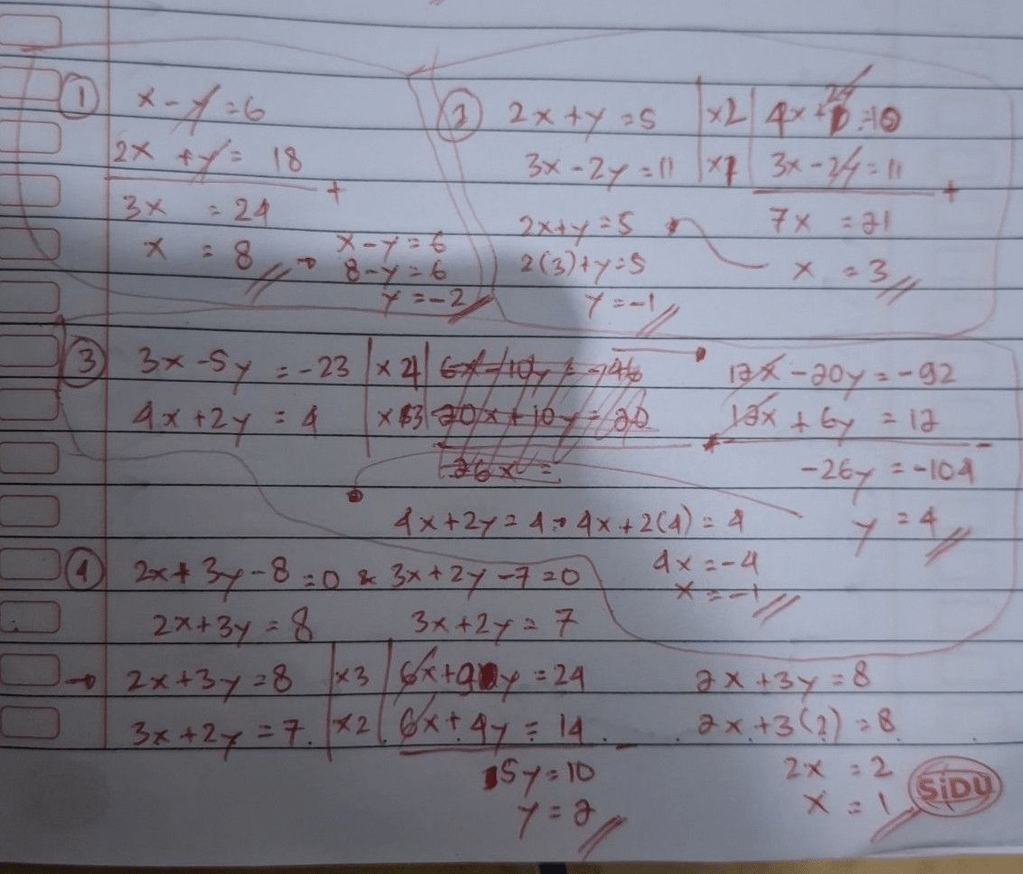 ① x - y = 6
2x + y = 18
+
3x = 24
x = 8 → x - y = 6
8 - y = 6
y = -2
② 2x + y = 5 | x2 | 4x + 2y = 10
3x - 2y = 11 | x1 | 3x - 2y = 11
+
7x = 21
x = 3
2x + y = 5
2(3) + y = 5
y = -1
③ 3x - 5y = -23 | x4 | 12x - 20y = -92
4x + 2y = 4 | x3 | 12x + 6y = 12
-
-26y = -104
y = 4
6x - 10y = -46
20x + 10y = 20
26x =
4x + 2y = 4 → 4x + 2(4) = 4
4x = -4
x = -1
④ 2x + 3y - 8 = 0 & 3x + 2y - 7 = 0
2x + 3y = 8 3x + 2y = 7
→ 2x + 3y = 8 | x3 | 6x + 9y = 24
3x + 2y = 7 | x2 | 6x + 4y = 14
-
5y = 10
y = 2
2x + 3y = 8
2x + 3(2) = 8
2x = 2
x = 1
SiDU